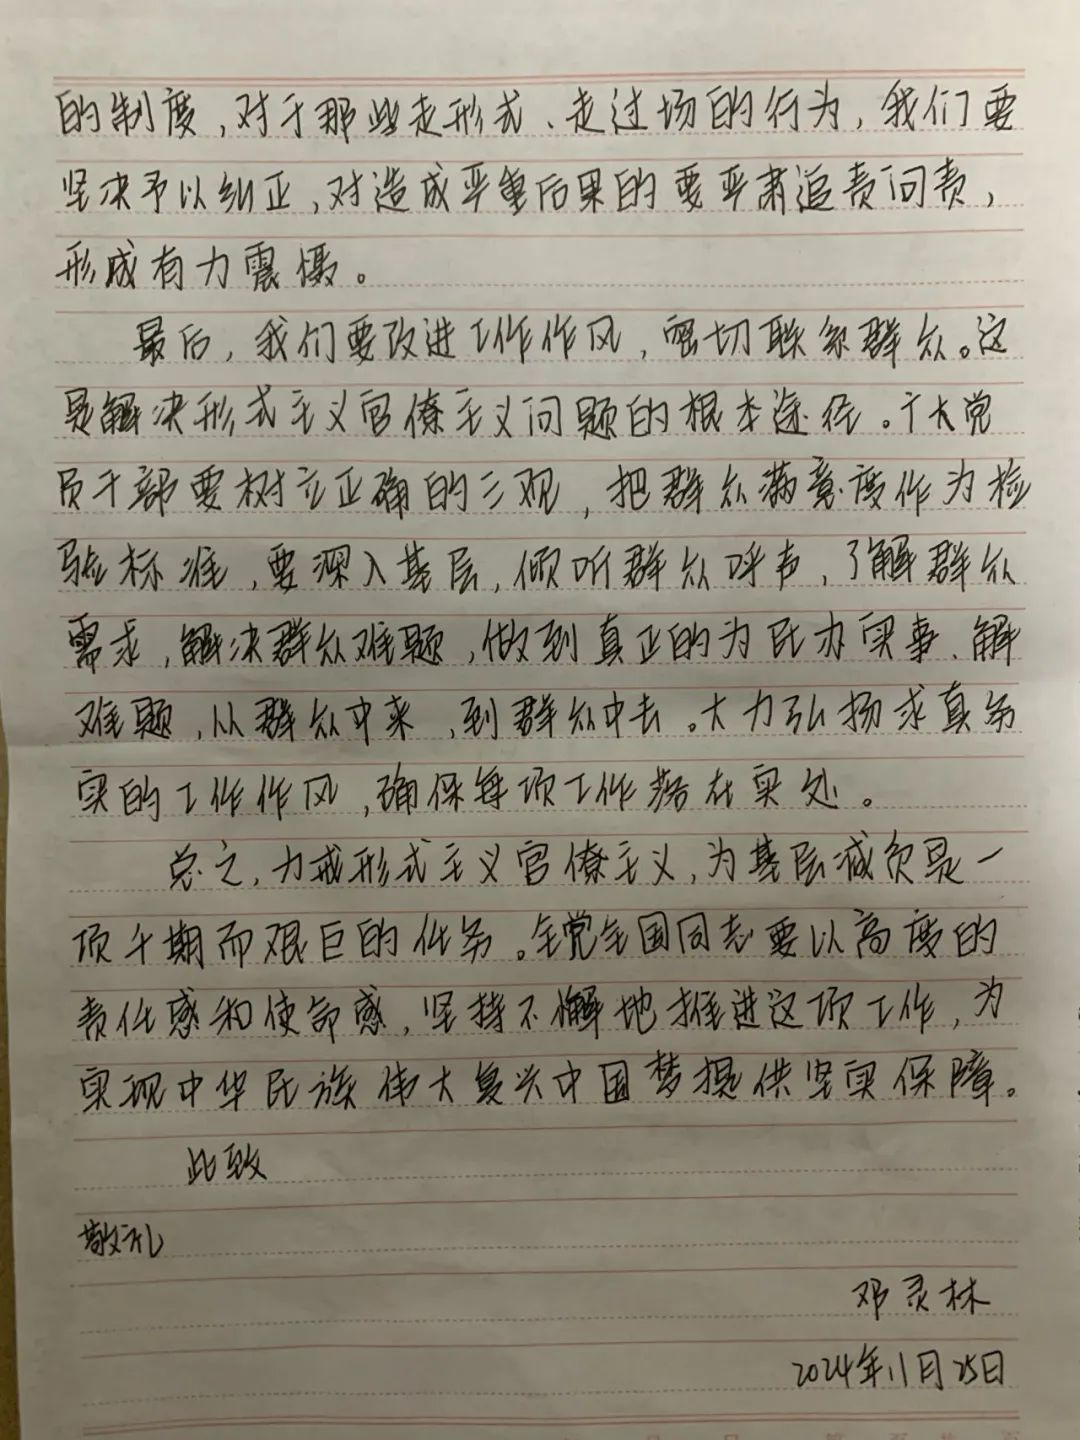 的制度，对于那些走形式、走过场的行为，我们要
坚决予以纠正，对造成严重后果的要严肃追责问责，
形成有力震慑。
最后，我们要改进工作作风，密切联系群众。这
是解决形式主义官僚主义问题的根本途径。广大党
员干部要树立正确的三观，把群众满意度作为检
验标准，要深入基层，倾听群众呼声，了解群众
需求，解决群众难题，做到真正的为民办实事、解
难题，从群众中来，到群众中去。大力弘扬求真务
实的工作作风，确保每项工作落在实处。
总之，力戒形式主义官僚主义，为基层减负是一
项长期而艰巨的任务。全党全国同志要以高度的
责任感和使命感，坚持不懈地推进这项工作，为
实现中华民族伟大复兴中国梦提供坚实保障。
此致
敬礼
邓灵林
2024年11月25日